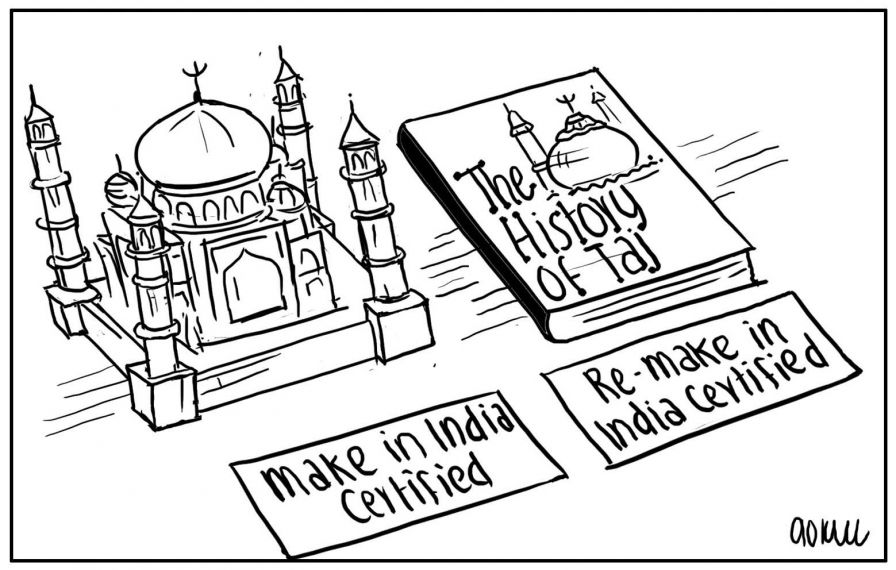 The
History
of Taj
Re-make in
India Certified
make in India
Certified